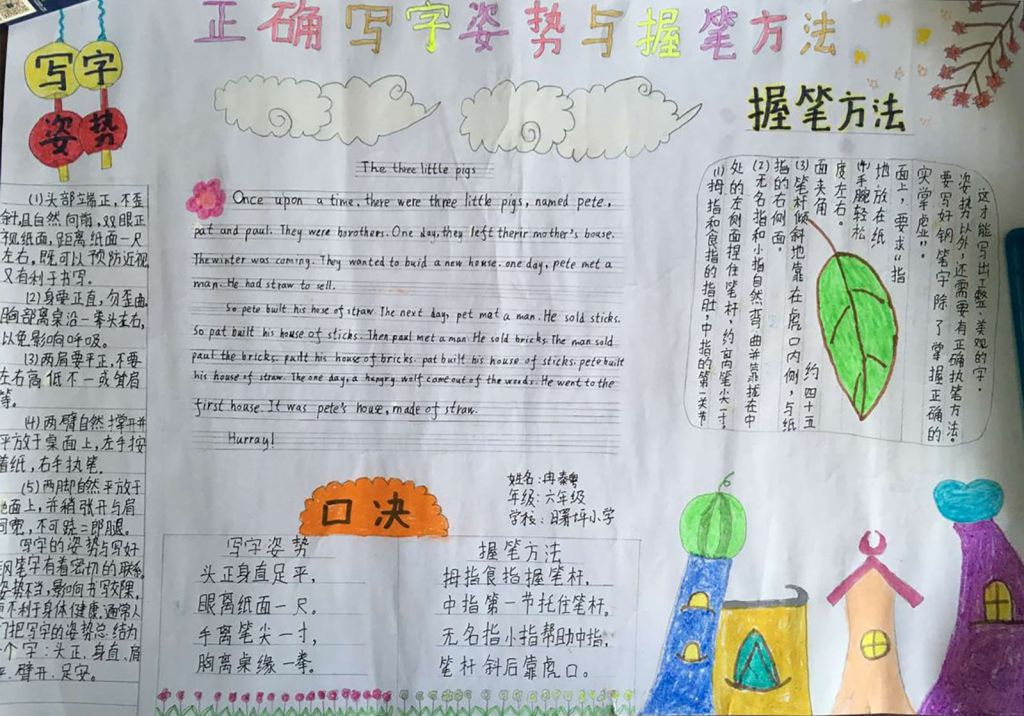 正确写字姿势与握笔方法
写字
姿势
(1)头部端正,不歪
斜,且自然向前,双眼正
视纸面,距离纸面一尺
左右,既可以预防近视,
又有利于书写。
(2)身要正直,勿歪曲
胸部离桌沿一拳头左右,
以免影响呼吸。
(3)两肩要平正,不要
左右高低不一或耸肩
等。
(4)两臂自然撑开并
平放于桌面上,左手按
着纸,右手执笔。
(5)两脚自然平放于
地面上,并稍张开与肩
同宽,不可跷二郎腿。
写字的姿势与写好
钢笔字有着密切的联系,
姿势不当,影响书写效果,
更不利于身体健康,通常人
们把写字的姿势总结为
个字:头正、身直、肩
平、臂开、足安。
The three little pigs
Once upon a time, there were three little pigs, named pete,
pat and paul. They were borothers. One day, they left therir mother's bouse.
The winter was coming. They wanted to buid a new house. one day, pete met a
man. He had straw to sell.
So pete built his hose of straw. The next day, pet mat a man. He sold sticks.
So pat built his house of sticks. Then paul met a man. He sold bricks. The man sold
paul the bricks. pailt his house of bricks. pat built his house of sticks. pete built
his house of straw. The one day, a hangry wolf came out of the woods. He went to the
first house. It was pete's house, made of straw.
Hurray!
握笔方法
这才能写出工整、美观的字,
姿势以外,还需要有正确执笔方法。
要写好钢笔字除了掌握正确的
实掌虚"。
面上,要求"指
地放在纸
(4)手腕轻松
度左右。
面夹角 约四十五
(3)笔杆倾斜地靠在虎口内侧,与纸
指的右侧面。
(2)无名指和小指自然弯曲并靠插在中
处的左侧面捏住笔杆,约离笔尖一寸。
(1)拇指和食指的指肚,中指的第一关节
姓名:冉
年级:六年级
学校:
小学
口决
写字姿势
头正身直足平,
眼离纸面一尺。
手离笔尖一寸,
胸离桌缘一拳。
握笔方法
拇指食指握笔杆,
中指第一节托住笔杆。
无名指小指帮助中指,
笔杆斜后靠虎口。